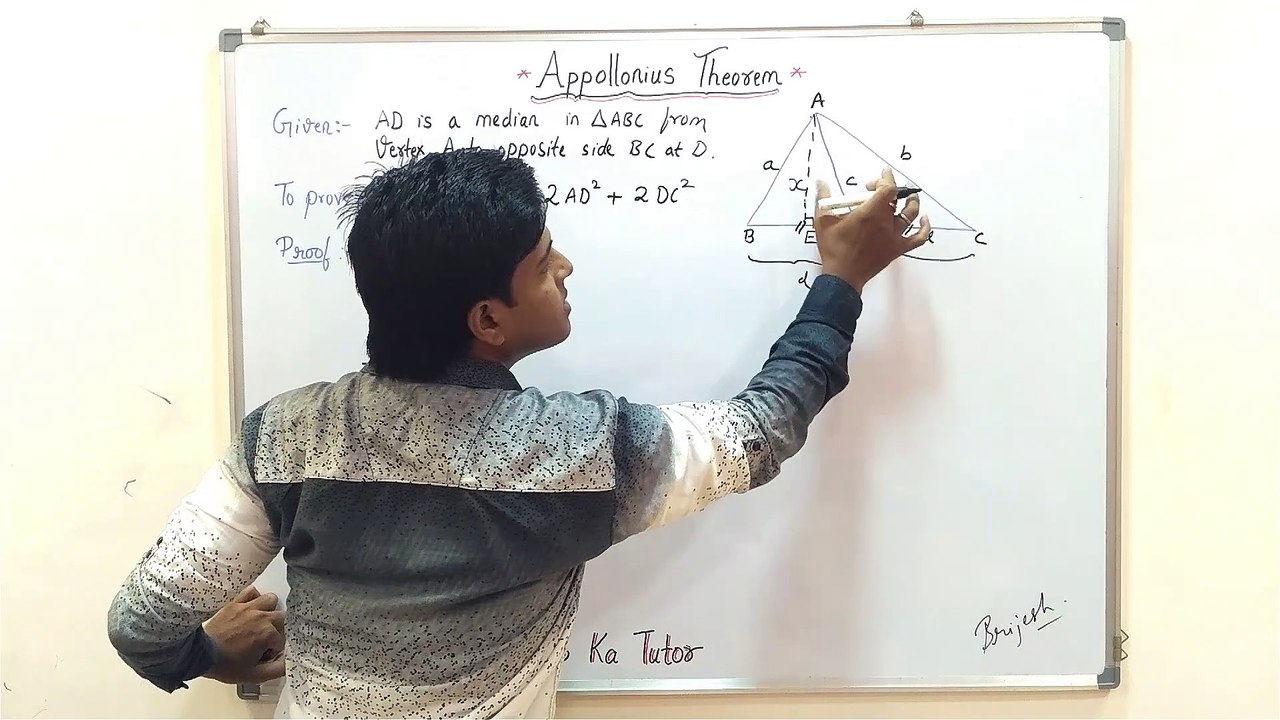 * Appollonius Theorem *
Given:- AD is a median in △ABC from
Vertex A to opposite side BC at D.
To prove 2AD² + 2DC²
Proof :
A
a
b
x
c
B
E
C
d
Ka Tutor
Brijesh.